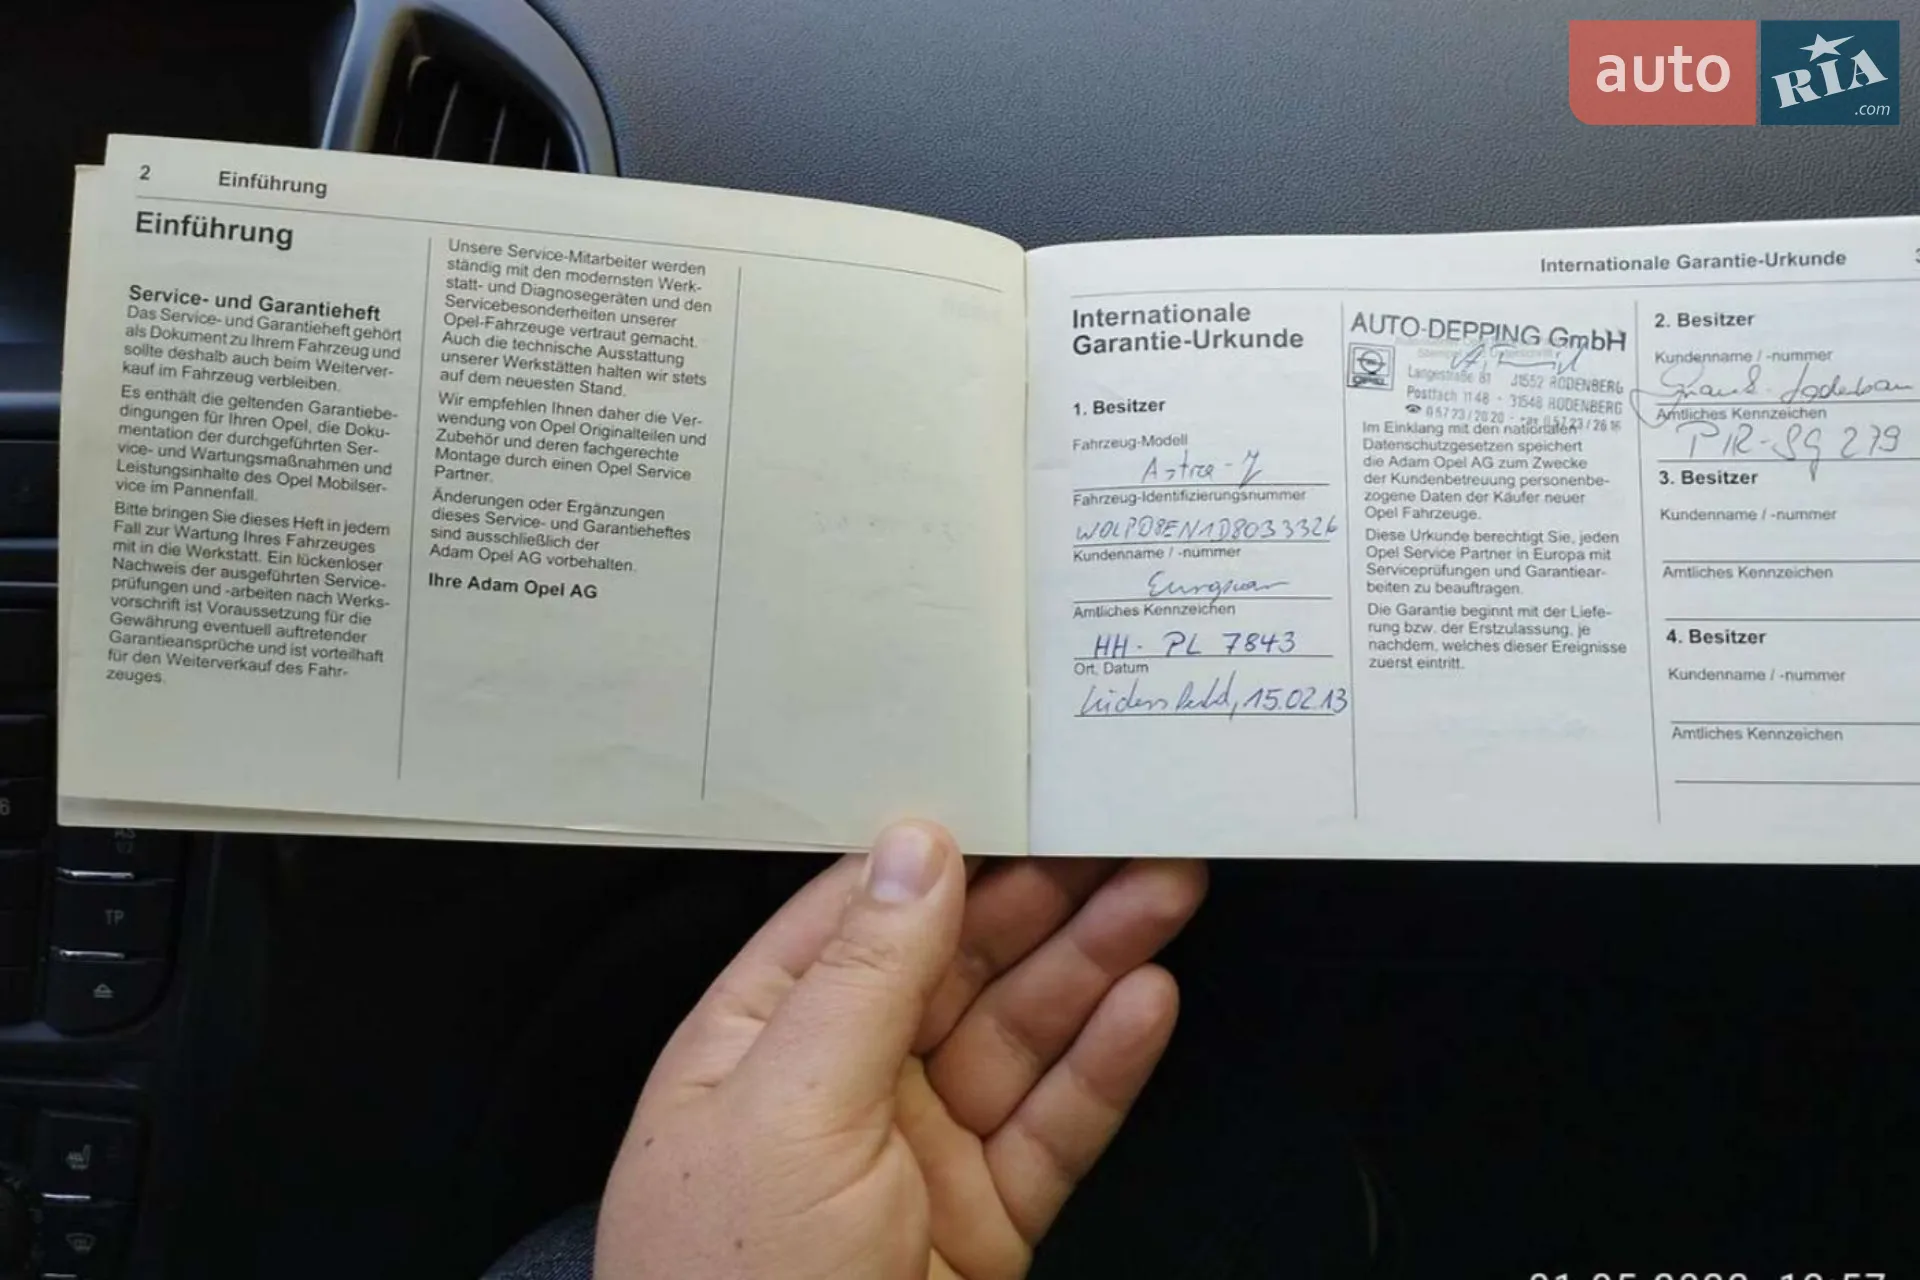 auto
RIA
.com
2 Einführung
Einführung
Service- und Garantieheft
Das Service- und Garantieheft gehört
als Dokument zu Ihrem Fahrzeug und
sollte deshalb auch beim Weiterver-
kauf im Fahrzeug verbleiben.
Es enthält die geltenden Garantiebe-
dingungen für Ihren Opel, die Doku-
mentation der durchgeführten Ser-
vice- und Wartungsmaßnahmen und
Leistungsinhalte des Opel Mobilser-
vice im Pannenfall.
Bitte bringen Sie dieses Heft in jedem
Fall zur Wartung Ihres Fahrzeuges
mit in die Werkstatt. Ein lückenloser
Nachweis der ausgeführten Service-
prüfungen und -arbeiten nach Werks-
vorschrift ist Voraussetzung für die
Gewährung eventuell auftretender
Garantieansprüche und ist vorteilhaft
für den Weiterverkauf des Fahr-
zeuges.
Unsere Service-Mitarbeiter werden
ständig mit den modernsten Werk-
statt- und Diagnosegeräten und den
Servicebesonderheiten unserer
Opel-Fahrzeuge vertraut gemacht.
Auch die technische Ausstattung
unserer Werkstätten halten wir stets
auf dem neuesten Stand.
Wir empfehlen Ihnen daher die Ver-
wendung von Opel Originalteilen und
Zubehör und deren fachgerechte
Montage durch einen Opel Service
Partner.
Änderungen oder Ergänzungen
dieses Service- und Garantieheftes
sind ausschließlich der
Adam Opel AG vorbehalten.
Ihre Adam Opel AG
Internationale Garantie-Urkunde 3
Internationale
Garantie-Urkunde
1. Besitzer
Fahrzeug-Modell
Astra-J
Fahrzeug-Identifizierungsnummer
W0LPD8EN1D8033326
Kundenname / -nummer
Europcar
Amtliches Kennzeichen
HH- PL 7843
Ort, Datum
15.02.13
AUTO-DEPPING GmbH
OPEL
Langestraße 81 31552 RODENBERG
Postfach 1148 - 31548 RODENBERG
☎ 05723/2020
Im Einklang mit den nationalen
Datenschutzgesetzen speichert
die Adam Opel AG zum Zwecke
der Kundenbetreuung personenbe-
zogene Daten der Käufer neuer
Opel Fahrzeuge.
Diese Urkunde berechtigt Sie, jeden
Opel Service Partner in Europa mit
Serviceprüfungen und Garantiear-
beiten zu beauftragen.
Die Garantie beginnt mit der Liefe-
rung bzw. der Erstzulassung, je
nachdem, welches dieser Ereignisse
zuerst eintritt.
2. Besitzer
Kundenname / -nummer
Amtliches Kennzeichen
PIR-SG 279
3. Besitzer
Kundenname / -nummer
Amtliches Kennzeichen
4. Besitzer
Kundenname / -nummer
Amtliches Kennzeichen
6
AS
1/2
TP